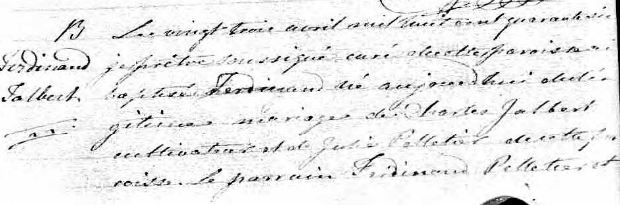 B
Ferdinand
Jalbert
Le vingt trois avril mil huit cent quarante six
je prêtre soussigné curé de cette paroisse ai
baptisé Ferdinand né aujourd'hui du lé
gitime mariage de Charles Jalbert
cultivateur et de Julie Pelletier de cette pa
roisse. Le parrain Ferdinand Pelletier et